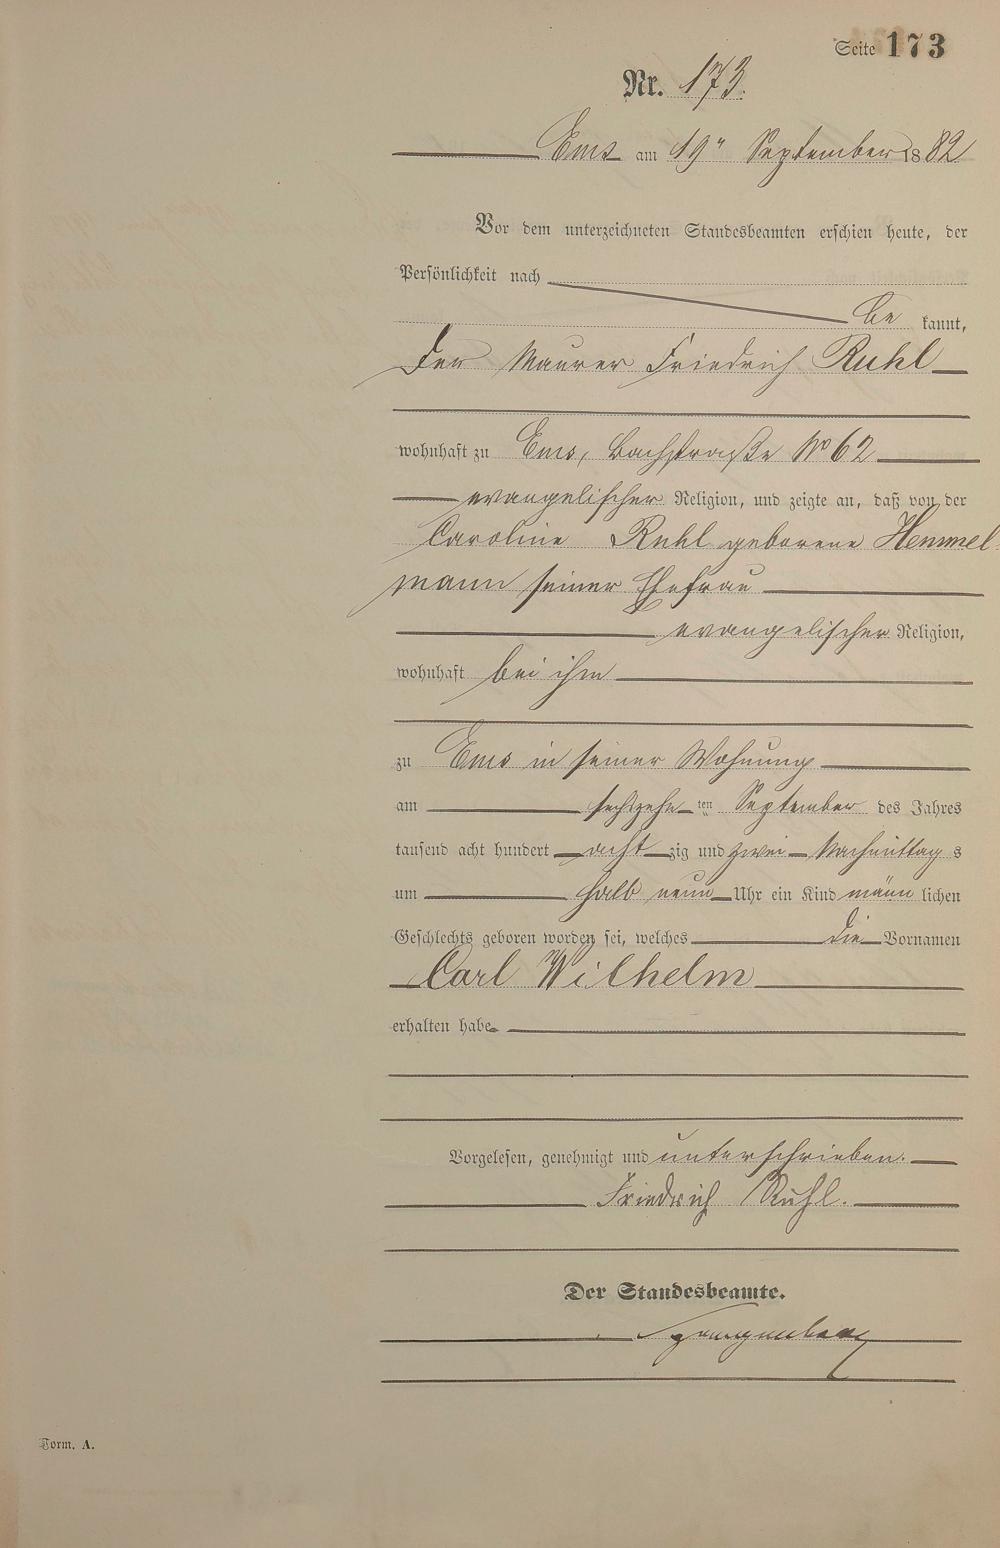 Seite 173
Nr. 173.
Ems am 19" September 1882
Vor dem unterzeichneten Standesbeamten erschien heute, der
Persönlichkeit nach
be kannt,
der Maurer Friedrich Ruhl
wohnhaft zu Ems, Bachstraße No 62
evangelischer Religion, und zeigte an, daß von der
Caroline Ruhl geborene Hemmel-
mann seiner Ehefrau
evangelischer Religion,
wohnhaft bei ihm
zu Ems in seiner Wohnung
am sechszehn ten September des Jahres
tausend acht hundert acht zig und zwei Nachmittag s
um halb neun Uhr ein Kind männ lichen
Geschlechts geboren worden sei, welches die Vornamen
Carl Wilhelm
erhalten habe
Vorgelesen, genehmigt und unterschrieben.
Friedrich Ruhl.
Der Standesbeamte.
Form. A.